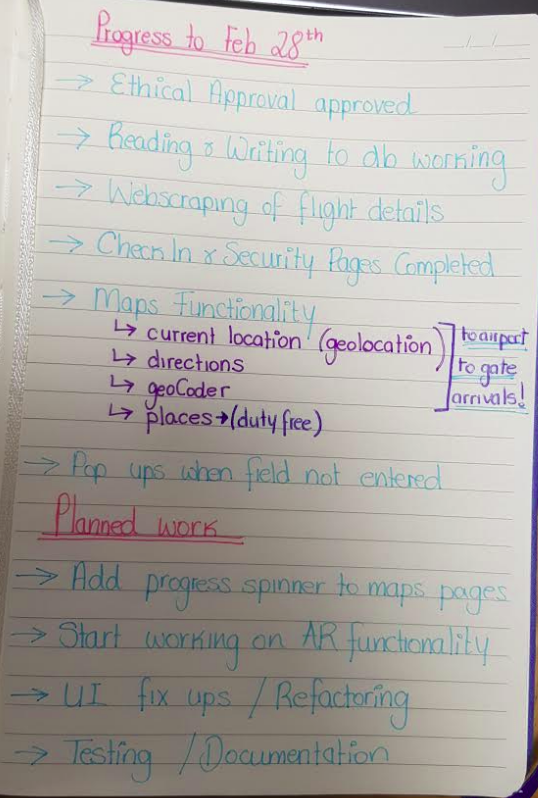 Progress to Feb 28th
→ Ethical Approval approved
→ Reading & Writing to db working
→ Webscraping of flight details
→ Check In & Security Pages Completed
→ Maps Functionality
↳ current location (geolocation)
↳ directions
↳ geoCoder
↳ places → (duty free)
to airport
to gate
arrivals!
→ Pop ups when field not entered
Planned work
→ Add progress spinner to maps pages
→ Start working on AR functionality
→ UI fix ups / Refactoring
→ Testing / Documentation